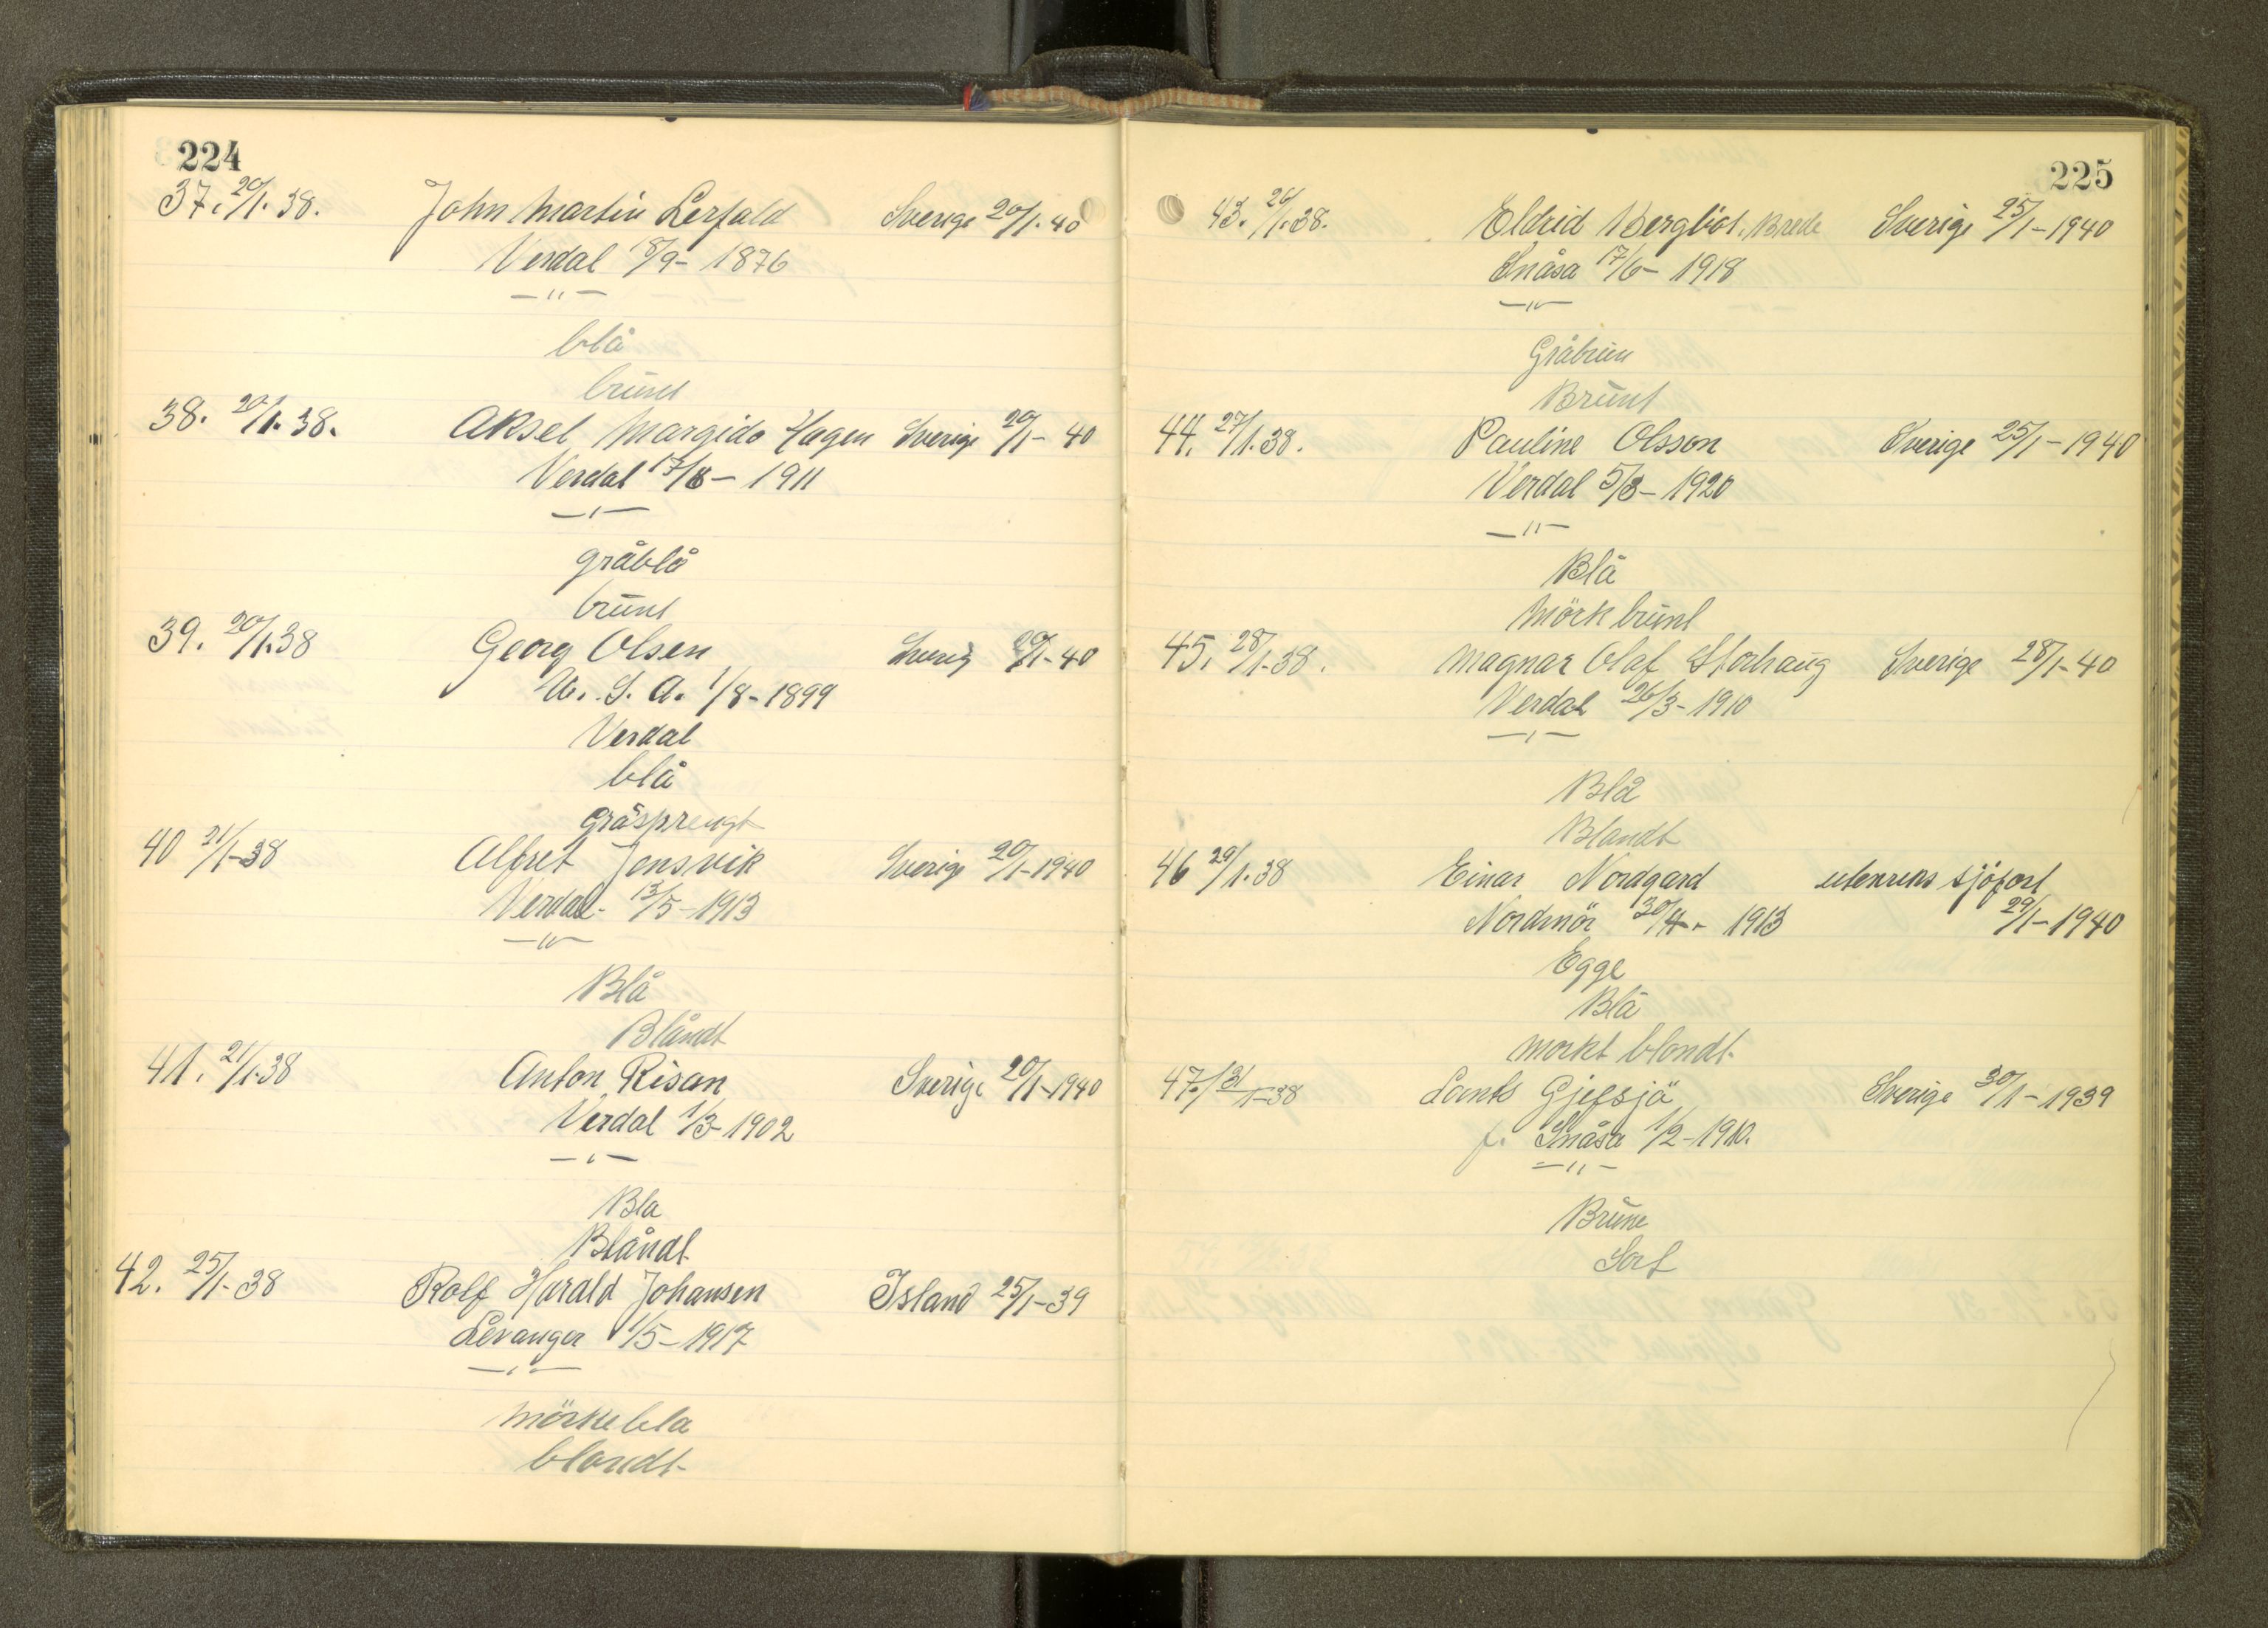 224
37. 20/1. 38. John Martin Lerfald Sverige 20/1. 40
Verdal 18/9 - 1876
— " —
blå
brunt
38. 20/1. 38. Aksel Margido Hagen Sverige 20/1 - 40
Verdal 17/8 - 1911
— " —
gråblå
brunt
39. 20/1. 38 Georg Olsen Sverig 20/1 - 40
U. S. A. 1/8 - 1899
Verdal
blå
gråsprengt
40 21/1 - 38 Alfret Jensvik Sverige 20/1 - 1940
Verdal - 13/5 - 1913
— " —
Blå
Blåndt
41. 21/1. 38 Anton Risan Sverige 20/1 - 1940
Verdal 1/3 - 1902
— " —
Bla
Blåndt
42. 25/1 - 38 Rolf Harald Johansen Island 25/1 - 39
Levanger 1/5 - 1917
— " —
mörkebla
blondt
225
43. 26/1. 38. Eldrid Bergliot Brede Sverige 25/1 - 1940
Snåsa 17/6 - 1918
— " —
Gråbrun
Brunt
44. 27/1. 38. Pauline Olsson Sverige 25/1 - 1940
Verdal 5/8 - 1920
— " —
Blå
Mörk brunt
45. 28/1. 38. Magnar Olaf Storhaug Sverige 28/1 - 40
Verdal 26/3 - 1910
— " —
Blå
Blandt
46 29/1. 38 Einar Nordgard utenriks sjöfart
Nordmör 30/4 - 1913 29/1 - 1940
Egge
Blå
morkt blondt.
47. 31/1 - 38 Lants Gjefsjö Sverige 30/1 - 1939
f. Snåsa 1/2 - 1910.
— " —
Brune
Sort